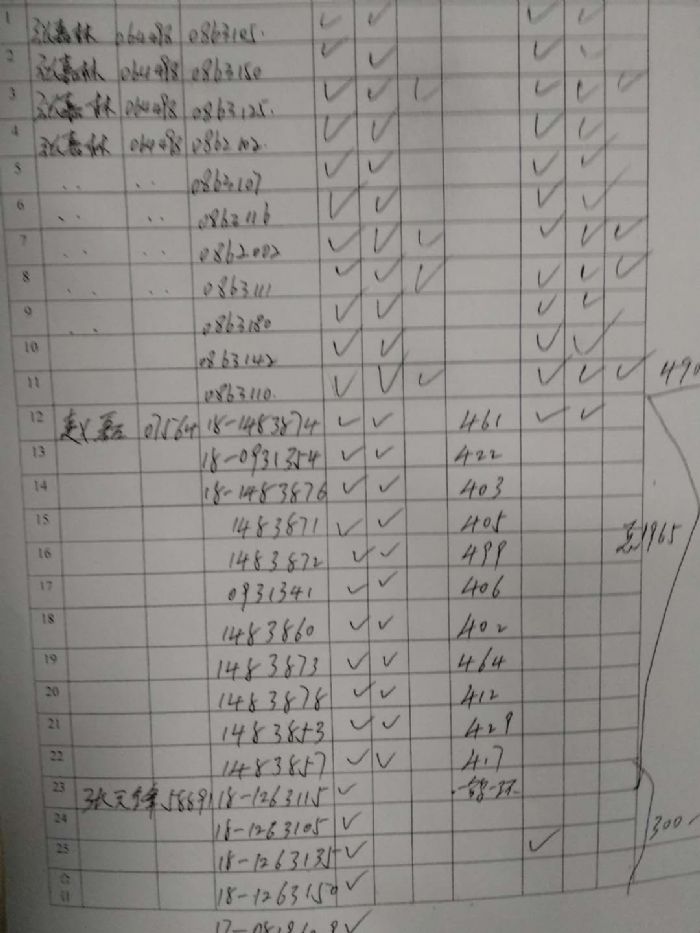 1 张嘉林 064498 0863105. ✓ ✓ ✓ ✓
2 张嘉林 064498 0863150 ✓ ✓ ✓ ✓
3 张嘉林 064498 0863125. ✓ ✓ ✓ ✓ ✓ ✓
4 张嘉林 064498 0862102. ✓ ✓ ✓ ✓
5 .. .. 0863107 ✓ ✓ ✓ ✓
6 .. .. 0863116 ✓ ✓ ✓ ✓
7 .. .. 0862002 ✓ ✓ ✓ ✓ ✓ ✓
8 .. .. 0863111 ✓ ✓ ✓ ✓ ✓ ✓
9 .. 0863180 ✓ ✓ ✓ ✓
10 0863142 ✓ ✓ ✓ ✓
11 0863110. ✓ ✓ ✓ ✓ ✓ ✓ 490
12 07564 18-1483874 ✓ ✓ 461 ✓ ✓
13 18-0931354 ✓ ✓ 422
14 18-1483876 ✓ ✓ 403
15 1483871 ✓ ✓ 405
16 1483872 ✓ ✓ 499 1965
17 0931341 ✓ ✓ 406
18 1483860 ✓ ✓ 402
19 1483873 ✓ ✓ 464
20 1483878 ✓ ✓ 412
21 1483853 ✓ ✓ 429
22 1483857 ✓ ✓ 417
23 张天 58891 18-1263115 ✓
24 18-1263105 ✓ 300
25 18-1263135 ✓ ✓
合计 18-1263150 ✓